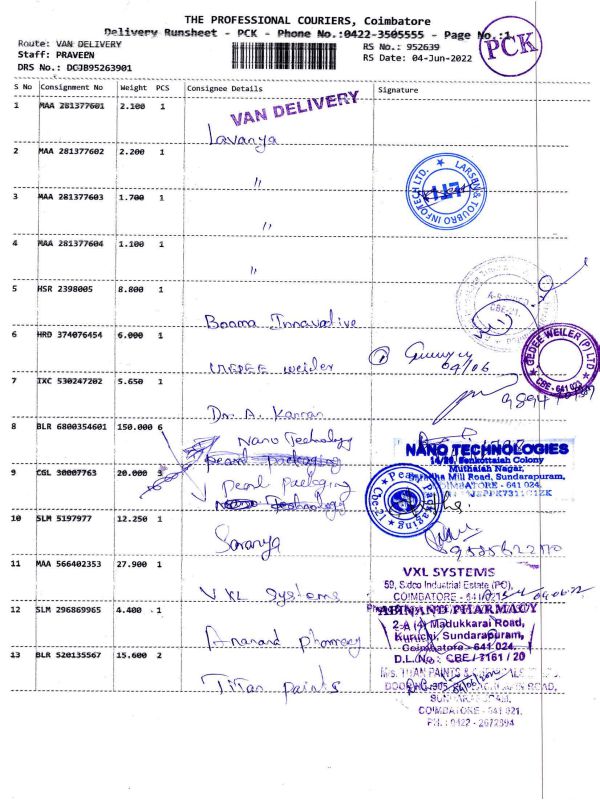 THE PROFESSIONAL COURIERS, Coimbatore
Delivery Runsheet - PCK - Phone No.:0422-3505555 - Page No.:1
Route: VAN DELIVERY
Staff: PRAVEEN
DRS No.: DCJB95263901
RS No.: 952639
RS Date: 04-Jun-2022
PCK
S No Consignment No Weight PCS Consignee Details Signature
VAN DELIVERY
1 MAA 281377601 2.100 1
Lavanya
2 MAA 281377602 2.200 1
"
LARSEN & TOUBRO INFOTECH LTD.
LTI
3 MAA 281377603 1.700 1
"
4 MAA 281377604 1.100 1
"
5 HSR 2398005 8.800 1
Booma Innavative
6 HRD 374076454 6.000 1
weider
04/06
GEDEE WEILER (P) LTD
CBE - 641 023
7 IXC 530247202 5.650 1
Dr. A. Kannan
8 BLR 6800354601 150.000 6
Nano Technology
pearl packaging
NANO TECHNOLOGIES
Venkottaiah Colony
Muthaiah Nagar,
Mill Road, Sundarapuram,
COIMBATORE - 641 024.
9 CGL 30007763 20.000 3
pearl packging
Nano Technology
Pearl Packaging
Cbe-21
10 SLM 5197977 12.250 1
Saranya
11 MAA 566402353 27.900 1
VXL Systems
VXL SYSTEMS
59, Sidco Industrial Estate (PO),
COIMBATORE - 641 021
12 SLM 296869965 4.400 1
Anand pharmacy
ABINAND PHARMACY
2-A (4) Madukkarai Road,
Kuruchi, Sundarapuram,
Coimbatore - 641 024.
D.L.No: CBE / 3161 / 20
13 BLR 520135567 15.600 2
Titan paints
M/s. TITAN PAINTS &
ROAD,
SUNDARAPURAM,
COIMBATORE - 641 021.
PH.: 0422 - 2672894